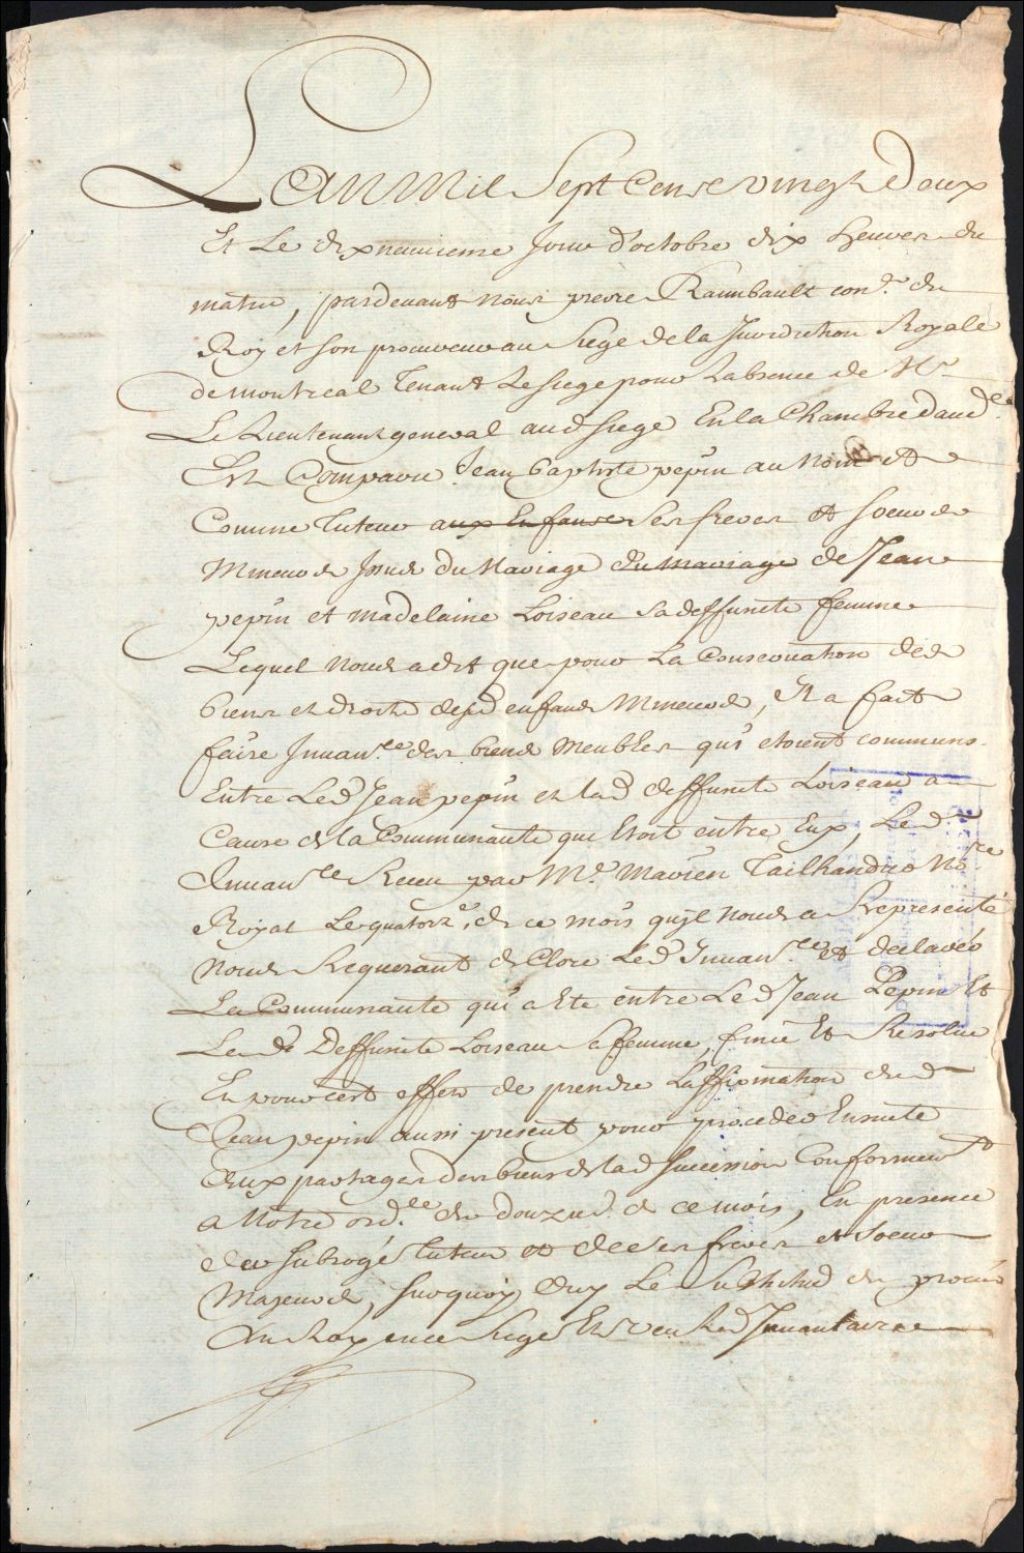 L'an Mil Sept Cens vingt Deux
Et Le dixneuvieme Jour d'octobre dix heures du
matin, pardevant Nous pierre Raimbault con.er du
Roy et son procureur au Siege de la Jurisdiction Royale
de montreal Tenant Le siege pour Labsence de Mr
Le Lieutenant general aud siege En la Chambre daud.ce
Est Comparu Jean Baptiste pepin au Nom et
Comme Tuteur aux Enfans Ses freres et soeurs
Mineurs Issus du Mariage du mariage de Jean
pepin et Madelaine Loiseau sa deffuncte femme
Lequel Nous a dit que pour La Conservation des
biens et droits desd enfans Mineurs, Il a fait
faire Invan.re des biens Meubles qui etoient communs
Entre Led Jean pepin et lad deffuncte Loiseau a
Cause de la Communaute qui Etoit entre Eux, Led.
Invan.re Receu par Me. Marien Tailhandier No.re
Royal Le quatorz.e de ce mois qu'jl Nous a Representé
Nous Requerant de Clore Led Invan.re et declarer
La Communaute qui a Ete entre Led Jean Pepin Et
Lad Deffuncte Loiseau sa femme, finie Et Resolue
En pour cet effet de prendre Laffirmation dud
Jean pepin aussi present pour proceder Ensuite
aux partages des biens de lad succession Conformem.t
a Notre ord.ce du douze de ce mois, En presence
du subrogé Tuteur et de ses freres et soeurs
Majeurs, surquoy, ouy Le Substitud du procur
du Roy en ce Siege Et Veu Led Jnvantaire